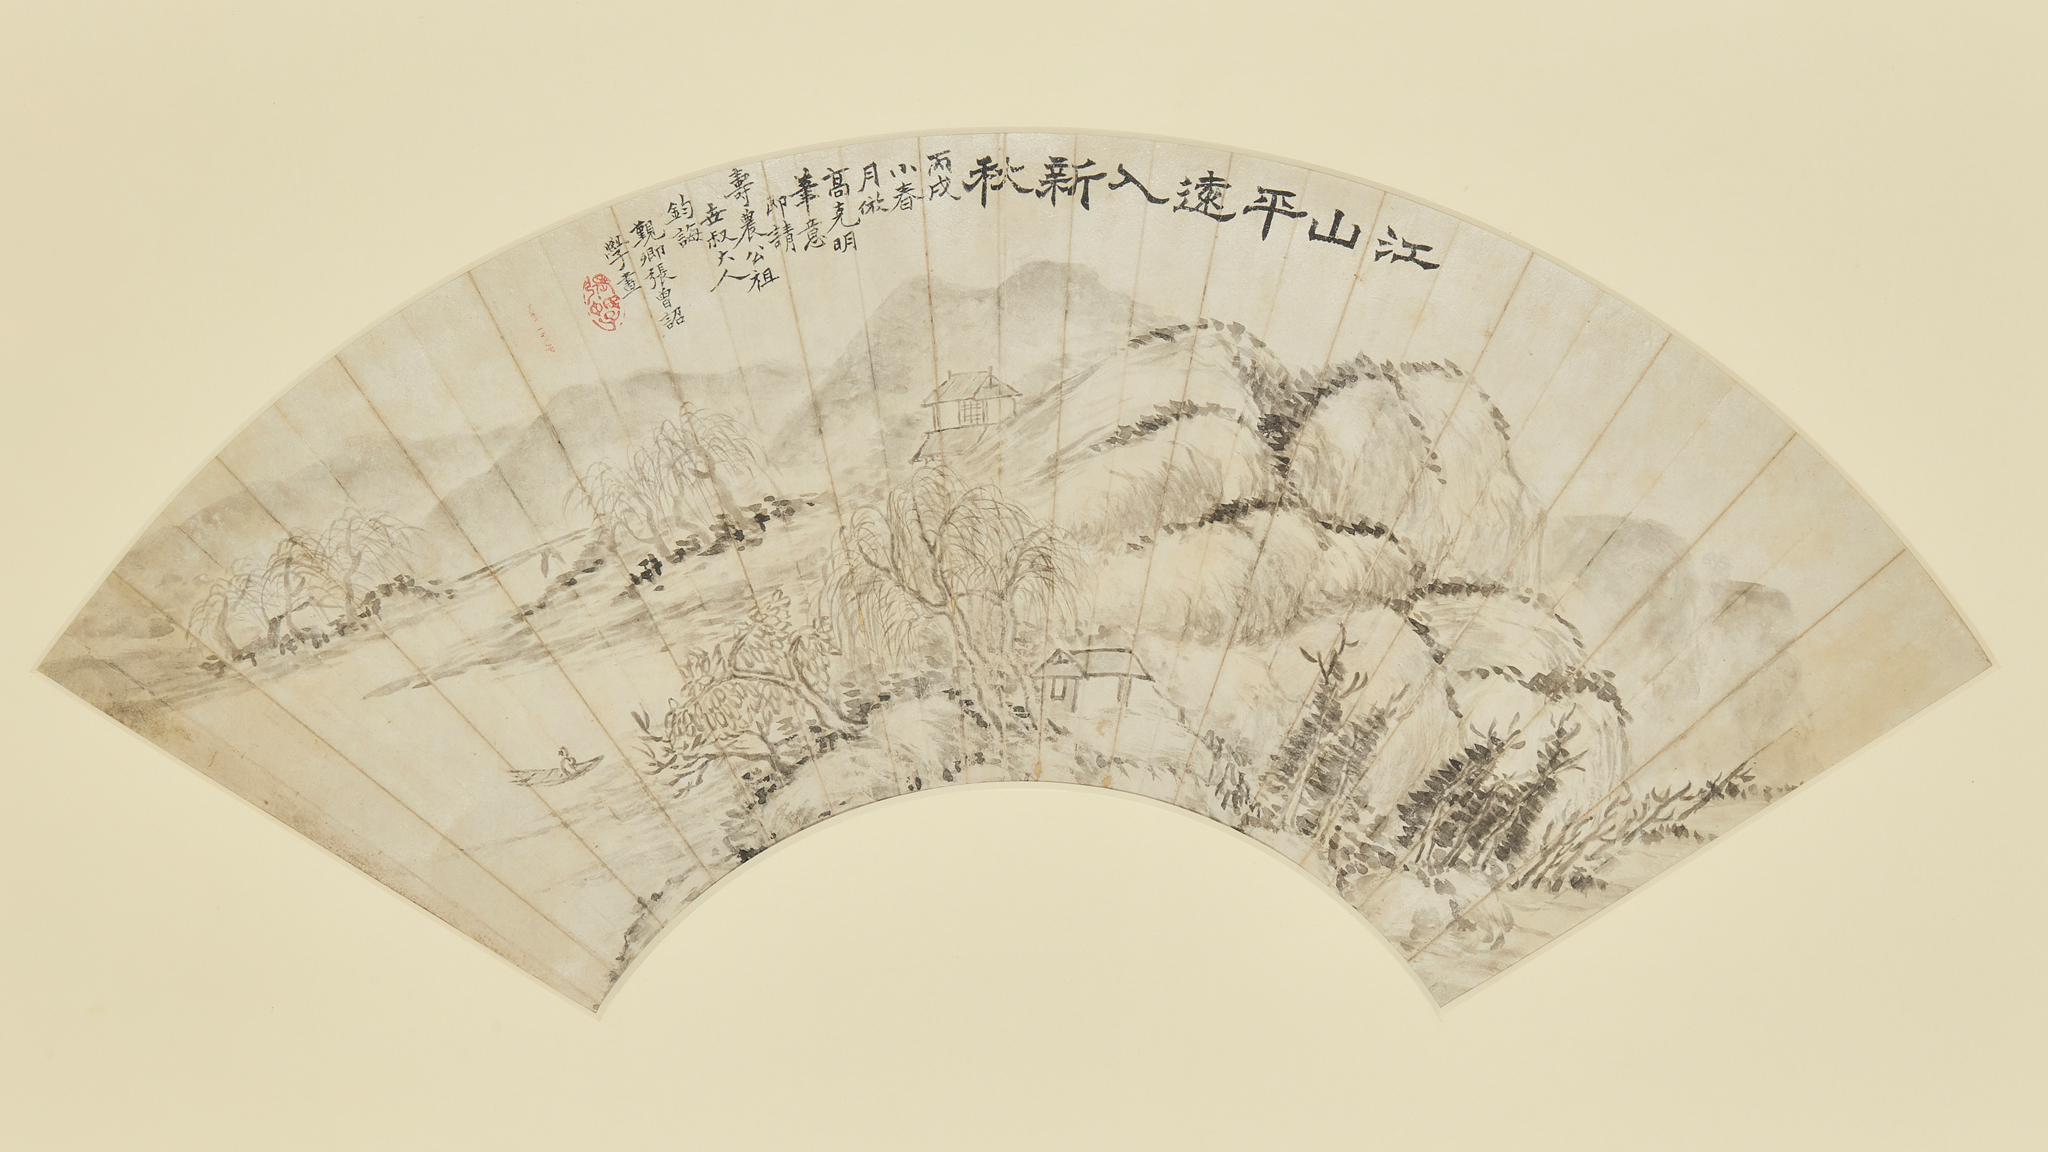 江山平遠入新秋
丙戌
小春
月倣
高克明
筆意
即請
壽農公祖
世叔大人
鈞誨
覲卿張曾詔
學畫